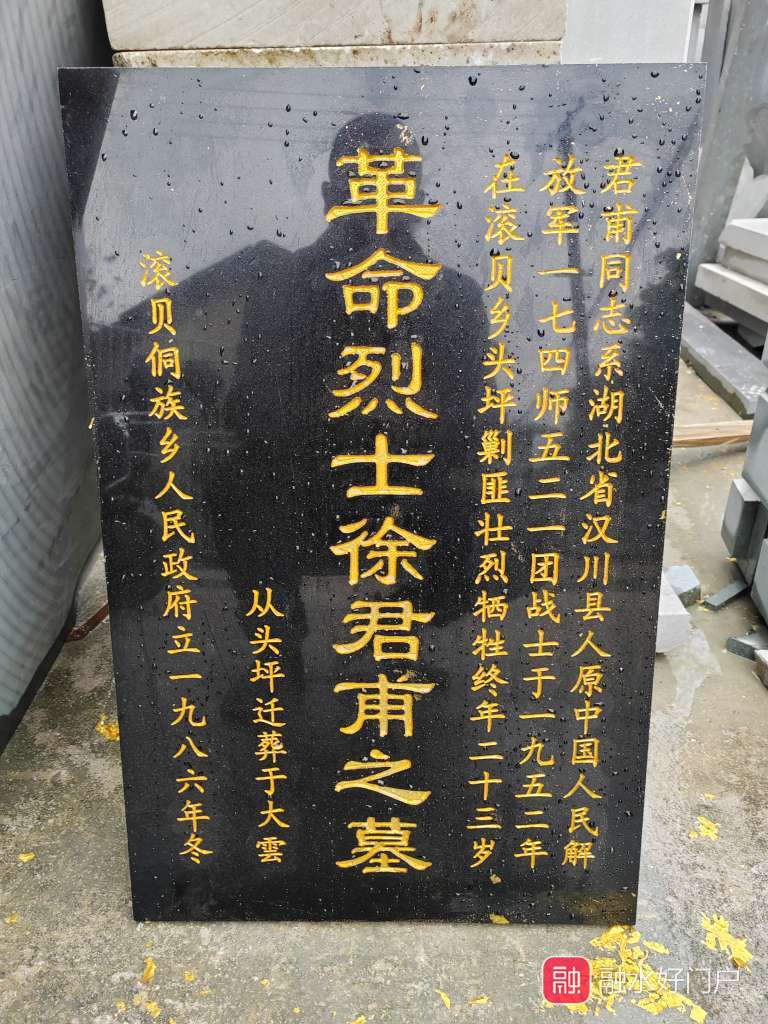 君甫同志系湖北省汉川县人原中国人民解
放军一七四师五二一团战士于一九五二年
在滚贝乡头坪剿匪壮烈牺牲终年二十三岁
革命烈士徐君甫之墓
从头坪迁葬于大雲
滚贝侗族乡人民政府立一九八六年冬
融 融水好门户